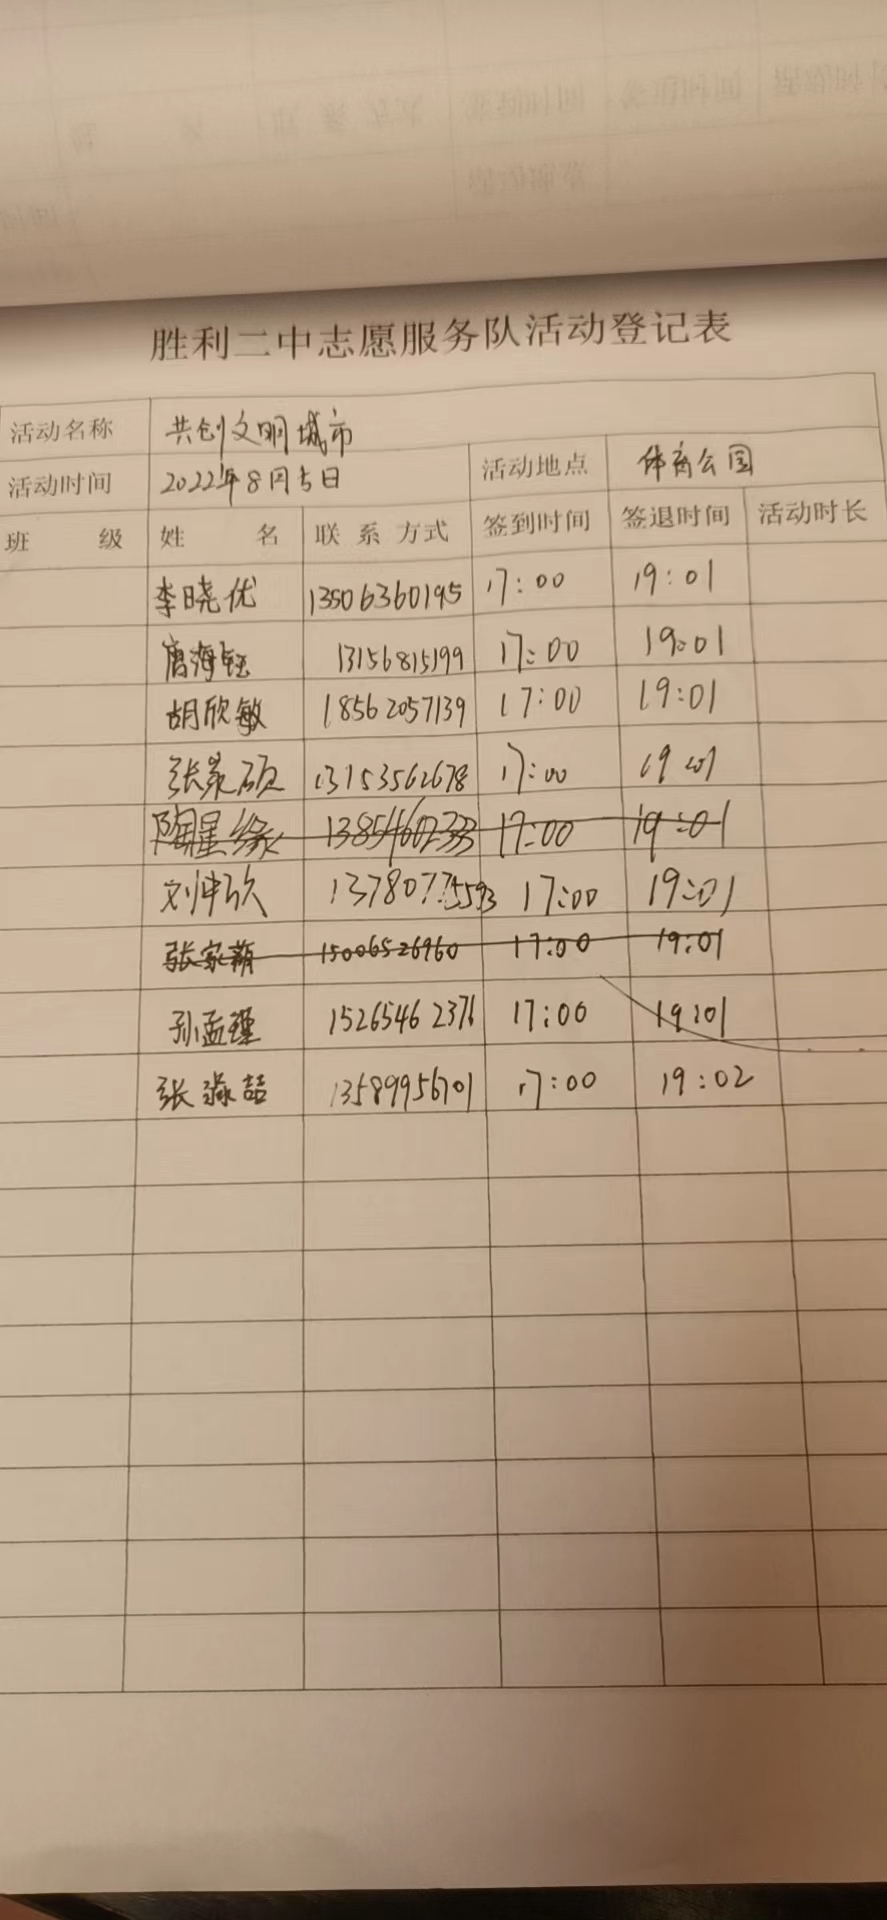 胜利二中志愿服务队活动登记表
活动名称 共创文明城市
活动时间 2022年8月5日 活动地点 体育公园
班 级 姓 名 联系方式 签到时间 签退时间 活动时长
李晓优 13506360195 17:00 19:01
唐海钰 13156815199 17:00 19:01
胡欣敏 18562057139 17:00 19:01
张 硕 13153562678 17:00 19:01
陶星缘 17:00 19:01
刘 13780775593 17:00 19:01
张家萌 15006526960 17:00 19:01
孙孟瑾 15265462376 17:00 19:01
张淼喆 13589956701 17:00 19:02